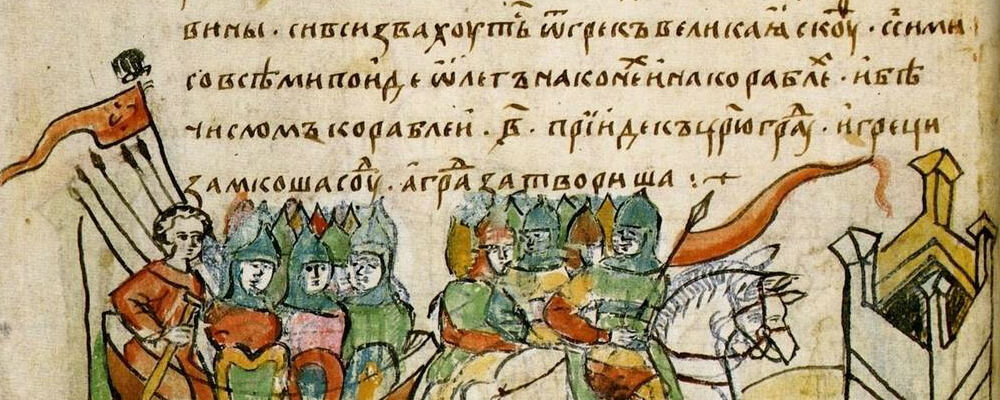 вины · сивсизвахоуть ѿгрекъвеликаꙗскоуⷴ · сь̾сими
совсѣмипоиде ѡ҆легънаконехи҆накораблех · и҆бѣ
числомъкораблеи · в҃ · прїидекъцр҃югра́ · и҆греци
замкошасоуⷣ · аграⷣзатвориша :